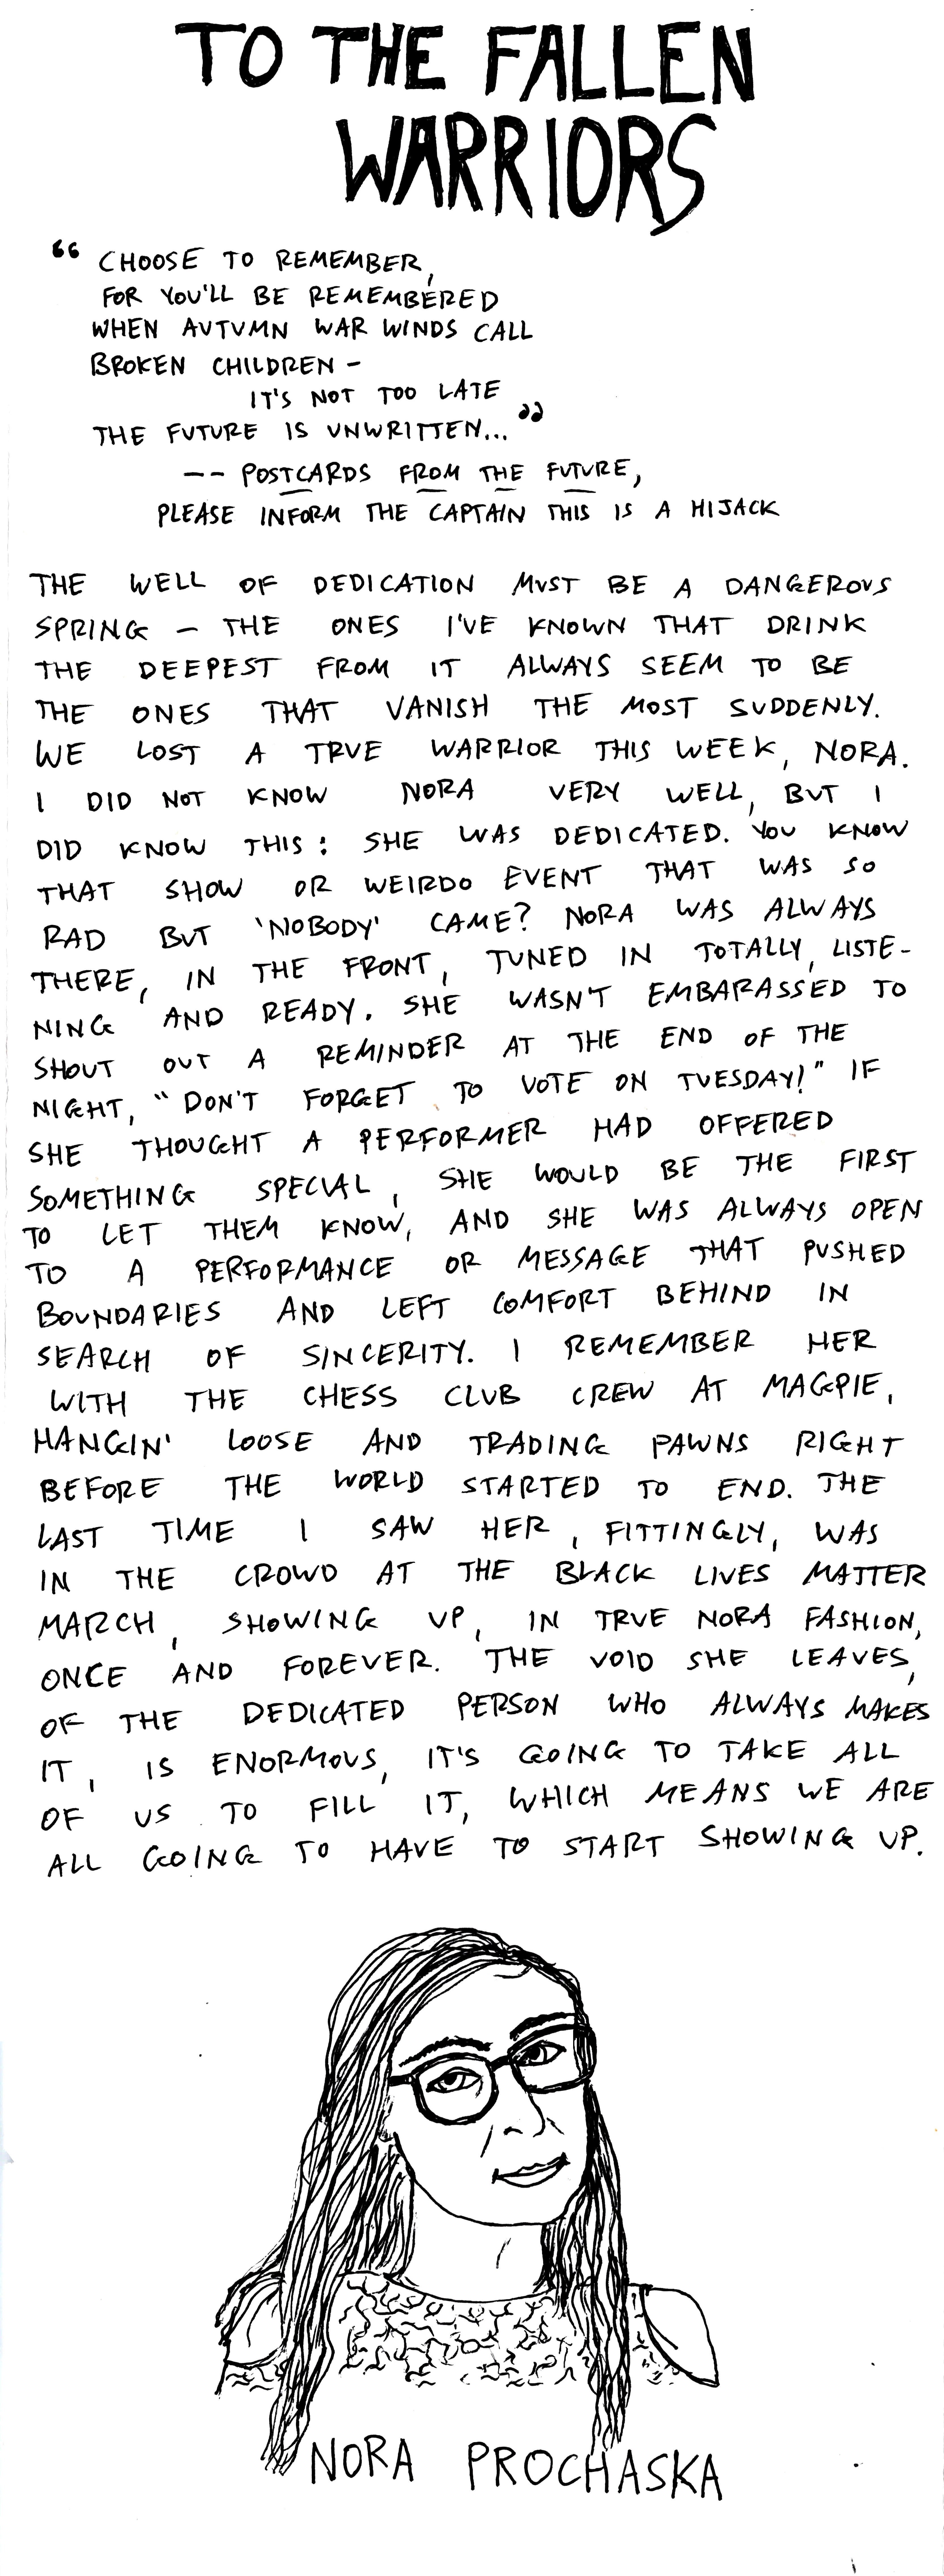 TO THE FALLEN
WARRIORS
“ CHOOSE TO REMEMBER,
FOR YOU'LL BE REMEMBERED
WHEN AUTUMN WAR WINDS CALL
BROKEN CHILDREN -
IT'S NOT TOO LATE
THE FUTURE IS UNWRITTEN... ”
-- POSTCARDS FROM THE FUTURE,
PLEASE INFORM THE CAPTAIN THIS IS A HIJACK
THE WELL OF DEDICATION MUST BE A DANGEROUS
SPRING - THE ONES I'VE KNOWN THAT DRINK
THE DEEPEST FROM IT ALWAYS SEEM TO BE
THE ONES THAT VANISH THE MOST SUDDENLY.
WE LOST A TRUE WARRIOR THIS WEEK, NORA.
I DID NOT KNOW NORA VERY WELL, BUT I
DID KNOW THIS: SHE WAS DEDICATED. YOU KNOW
THAT SHOW OR WEIRDO EVENT THAT WAS SO
RAD BUT 'NOBODY' CAME? NORA WAS ALWAYS
THERE, IN THE FRONT, TUNED IN TOTALLY, LISTE-
NING AND READY. SHE WASN'T EMBARASSED TO
SHOUT OUT A REMINDER AT THE END OF THE
NIGHT, "DON'T FORGET TO VOTE ON TUESDAY!" IF
SHE THOUGHT A PERFORMER HAD OFFERED
SOMETHING SPECIAL, SHE WOULD BE THE FIRST
TO LET THEM KNOW, AND SHE WAS ALWAYS OPEN
TO A PERFORMANCE OR MESSAGE THAT PUSHED
BOUNDARIES AND LEFT COMFORT BEHIND IN
SEARCH OF SINCERITY. I REMEMBER HER
WITH THE CHESS CLUB CREW AT MAGPIE,
HANGIN' LOOSE AND TRADING PAWNS RIGHT
BEFORE THE WORLD STARTED TO END. THE
LAST TIME I SAW HER, FITTINGLY, WAS
IN THE CROWD AT THE BLACK LIVES MATTER
MARCH, SHOWING UP, IN TRUE NORA FASHION,
ONCE AND FOREVER. THE VOID SHE LEAVES,
OF THE DEDICATED PERSON WHO ALWAYS MAKES
IT, IS ENORMOUS, IT'S GOING TO TAKE ALL
OF US TO FILL IT, WHICH MEANS WE ARE
ALL GOING TO HAVE TO START SHOWING UP.
NORA PROCHASKA